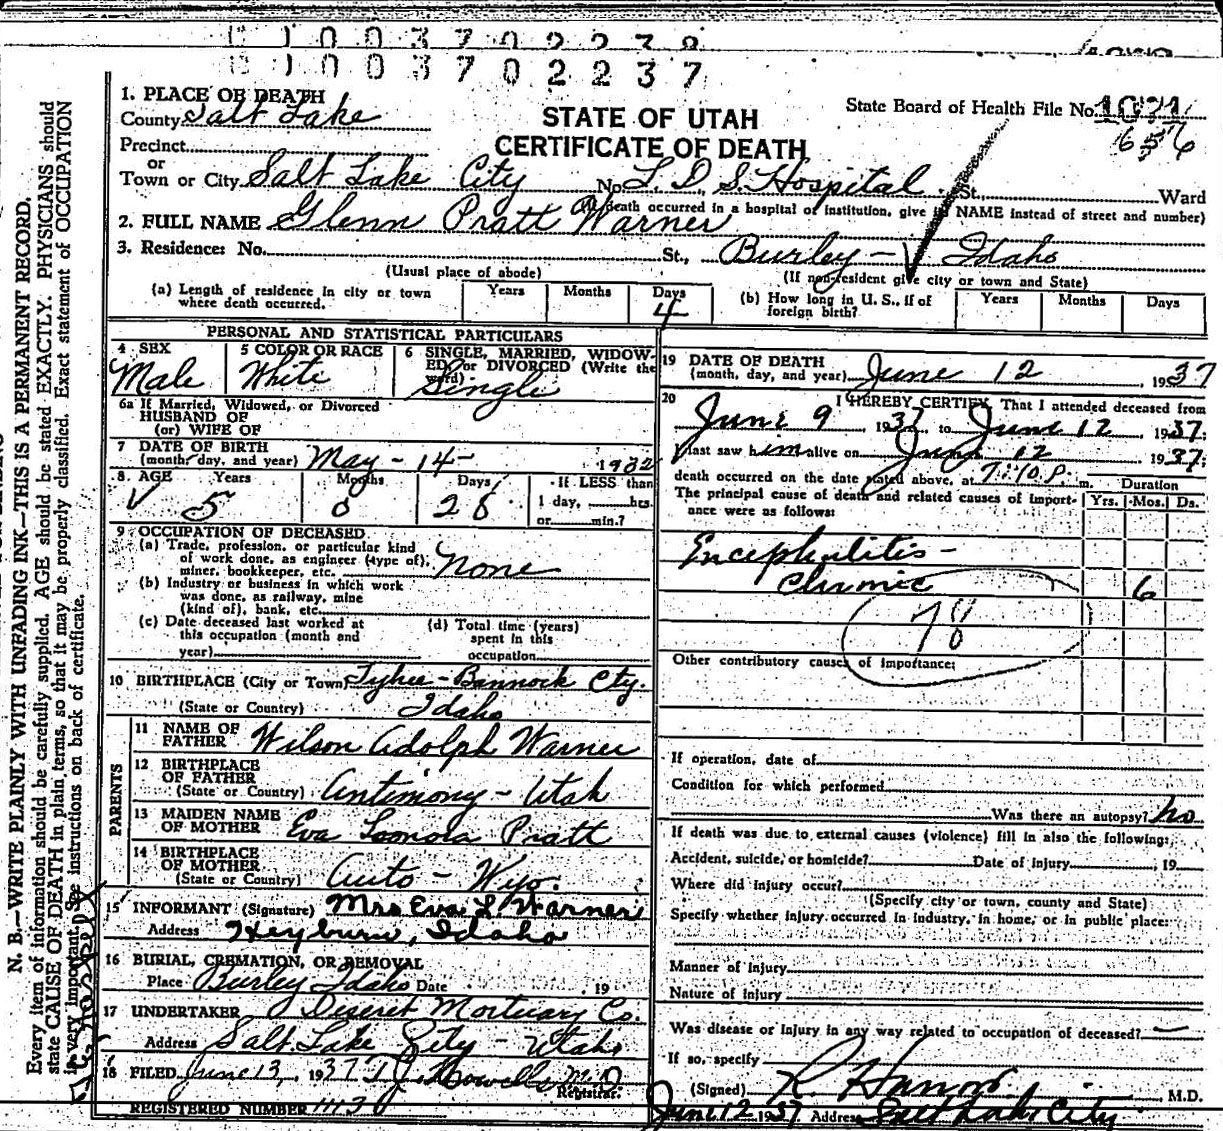 1003702238
1003702237
1. PLACE OF DEATH
County Salt Lake
STATE OF UTAH
CERTIFICATE OF DEATH
State Board of Health File No. 1071
656
Precinct
or
Town or City Salt Lake City No. L. D. S. Hospital St., Ward
(If death occurred in a hospital or institution, give its NAME instead of street and number)
2. FULL NAME Glenn Pratt Warner
3. Residence: No. St., Burley - Idaho
(Usual place of abode) (If non-resident give city or town and State)
(a) Length of residence in city or town where death occurred. Years Months Days 4
(b) How long in U. S., if of foreign birth? Years Months Days
PERSONAL AND STATISTICAL PARTICULARS
4 SEX Male
5 COLOR OR RACE White
6 SINGLE, MARRIED, WIDOWED or DIVORCED (Write the word) Single
6a If Married, Widowed, or Divorced
HUSBAND OF
(or) WIFE OF
7 DATE OF BIRTH
(month, day, and year) May - 14 - 1932
8. AGE Years 5 Months 0 Days 28 If LESS than
1 day, hrs.
or min.?
9 OCCUPATION OF DECEASED
(a) Trade, profession, or particular kind
of work done, as engineer (type of),
miner, bookkeeper, etc. None
(b) Industry or business in which work
was done, as railway, mine
(kind of), bank, etc.
(c) Date deceased last worked at
this occupation (month and
year)
(d) Total time (years)
spent in this
occupation
10 BIRTHPLACE (City or Town) Tyhee - Bannock Cty.
(State or Country) Idaho
PARENTS
11 NAME OF
FATHER Wilson Adolph Warner
12 BIRTHPLACE
OF FATHER
(State or Country) Antimony - Utah
13 MAIDEN NAME
OF MOTHER Eva Leonora Pratt
14 BIRTHPLACE
OF MOTHER
(State or Country) Auto - Wyo.
15 INFORMANT (Signature) Mrs Eva L. Warner
Address Heyburn, Idaho
16 BURIAL, CREMATION, OR REMOVAL
Place Burley Idaho Date 19
17 UNDERTAKER Deseret Mortuary Co.
Address Salt Lake City - Utah
18 FILED June 13, 1937 T. J. Howells M.D
Registrar.
REGISTERED NUMBER
19 DATE OF DEATH
(month, day, and year) June 12, 1937
20 I HEREBY CERTIFY, That I attended deceased from
June 9, 1937, to June 12, 1937;
I last saw him alive on June 12 1937;
death occurred on the date stated above, at 7:10 P. m.
The principal cause of death and related causes of importance were as follows:
Duration
Yrs. Mos. Ds.
Encephalitis -
Chronic 6
78
Other contributory causes of importance:
If operation, date of
Condition for which performed
Was there an autopsy? no
If death was due to external causes (violence) fill in also the following:
Accident, suicide, or homicide? Date of injury 19
Where did injury occur?
(Specify city or town, county and State)
Specify whether injury occurred in industry, in home, or in public place:
Manner of injury
Nature of injury
Was disease or injury in any way related to occupation of deceased? —
If so, specify
(Signed) M.D.
June 12 1937 Address Salt Lake City
N. B.—WRITE PLAINLY WITH UNFADING INK—THIS IS A PERMANENT RECORD.
Every item of information should be carefully supplied. AGE should be stated EXACTLY. PHYSICIANS should
state CAUSE OF DEATH in plain terms, so that it may be properly classified. Exact statement of OCCUPATION
is very important. See instructions on back of certificate.